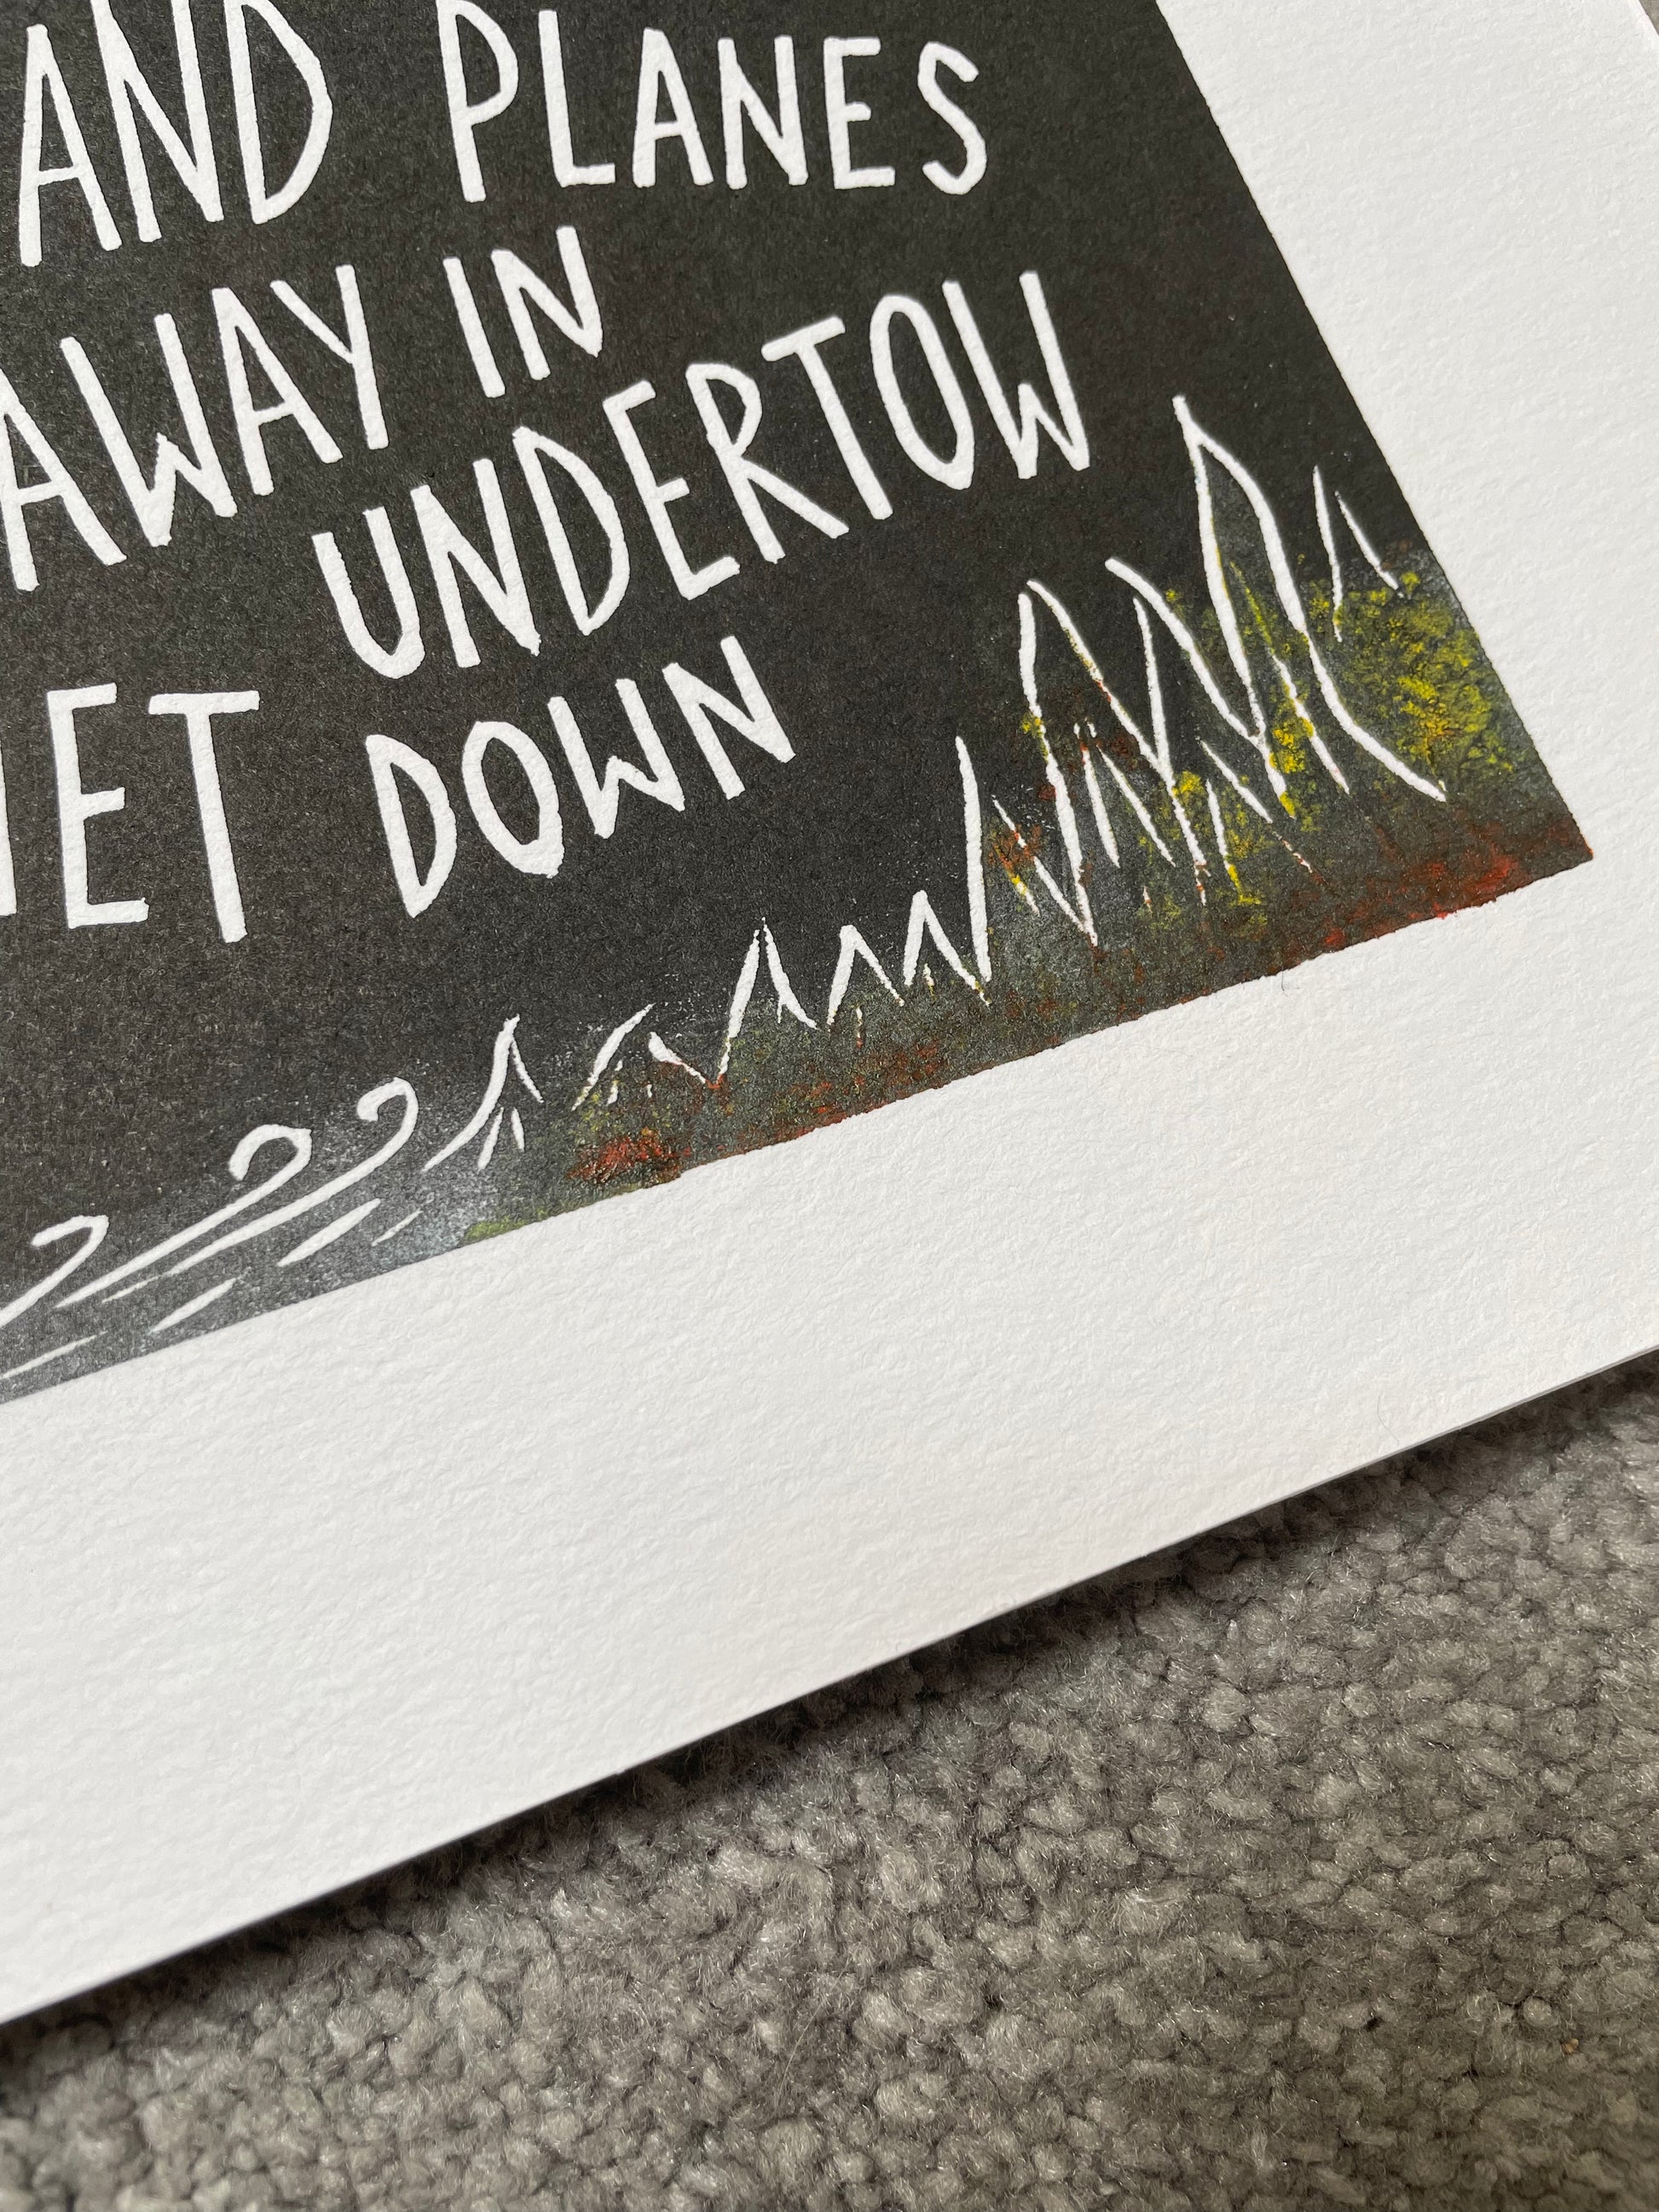 AND PLANES
AWAY IN
UNDERTOW
DOWN